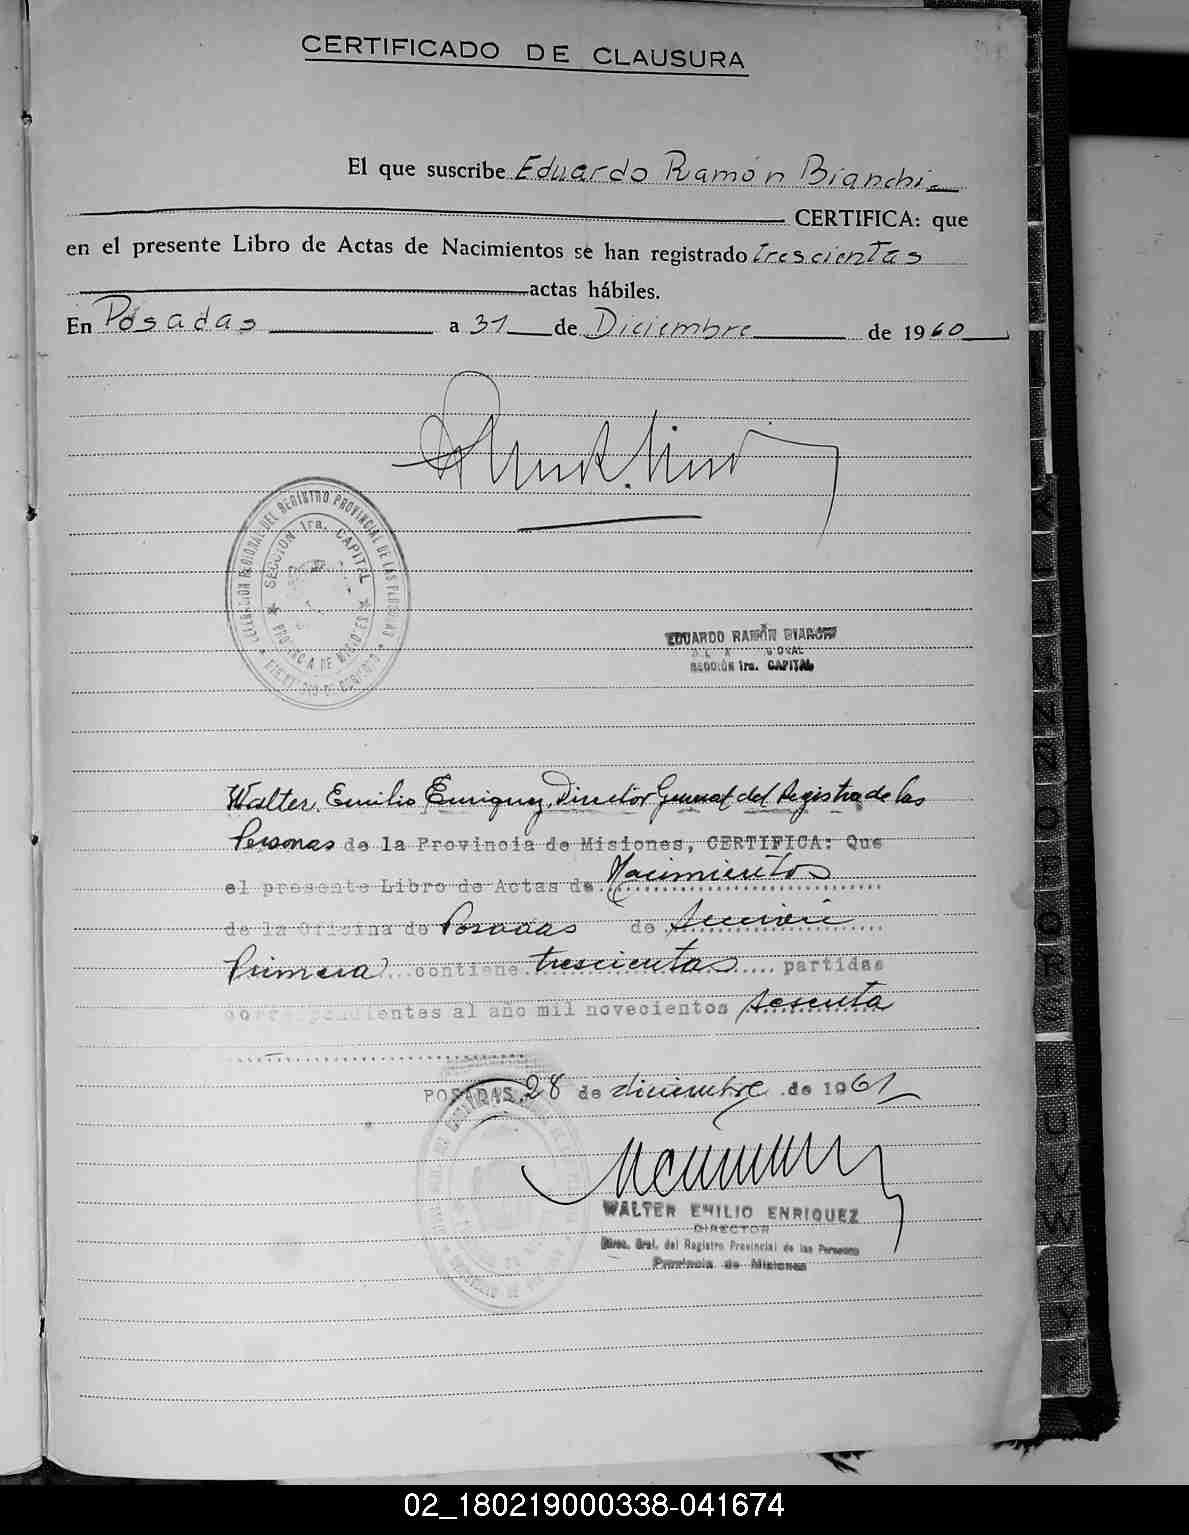 CERTIFICADO DE CLAUSURA
El que suscribe Eduardo Ramón Bianchi
CERTIFICA: que
en el presente Libro de Actas de Nacimientos se han registrado trescientas
actas hábiles.
En Posadas a 31 de Diciembre de 1960
REGIONAL DEL REGISTRO PROVINCIAL DE LAS
SECCION 1ra. CAPITAL
EDUARDO RAMÓN BIANCHI
SECCIÓN 1ra. CAPITAL
Walter Emilio Enriquez, Director General del Registro de las
Personas de la Provincia de Misiones, CERTIFICA: Que
el presente Libro de Actas de Nacimientos
de la Oficina de Posadas de Sección
Primera contiene trescientas partidas
correspondientes al año mil novecientos sesenta
POSADAS, 28 de diciembre de 1961
WALTER EMILIO ENRIQUEZ
DIRECTOR
Direc. Gral. del Registro Provincial de las Personas
Provincia de Misiones
U
V
W
X
Y
02_180219000338-041674